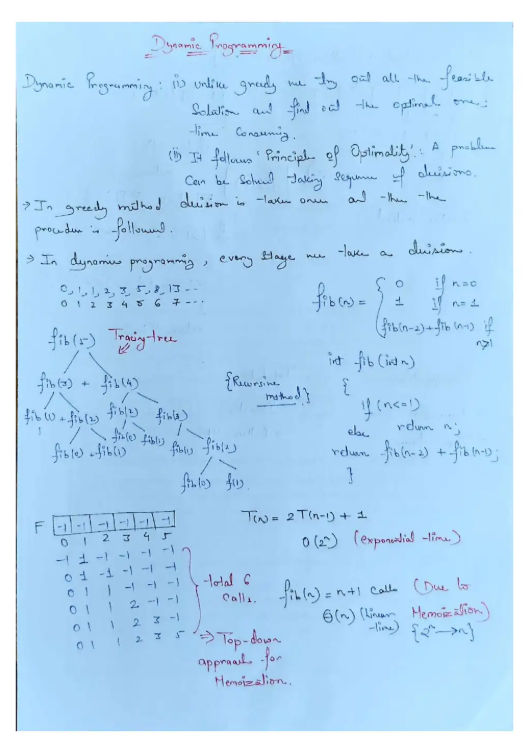 Dynamic Programming
Dynamic Programming: (i) unlike greedy we try out all the feasible
Solution and find out the optimal one;
time Consuming.
(ii) It follows 'Principle of Optimality': A problem
Can be Solved taking sequence of decisions.
→ In greedy method decision is taken once and then the
procedure is followed.
→ In dynamic programming, every stage we take a decision.
0, 1, 1, 2, 3, 5, 8, 13 ---
0 1 2 3 4 5 6 7 ---
fib(n) = { 0 if n=0
1 if n=1
fib(n-2)+fib(n-1) if n>1
fib(5) Tracing tree
fib(3) + fib(4)
fib(1) + fib(2) fib(2) fib(3)
1 fib(0) + fib(1) fib(0) fib(1) fib(1) fib(2)
fib(0) f(1)
{Recursive method}
int fib(int n)
{
if (n<=1)
return n;
else
return fib(n-2) + fib(n-1);
}
F -1 -1 -1 -1 -1 -1
0 1 2 3 4 5
-1 1 -1 -1 -1 -1
0 1 -1 -1 -1 -1
0 1 1 -1 -1 -1
0 1 1 2 -1 -1
0 1 1 2 3 -1
0 1 1 2 3 5
total 6
Calls.
⇒ Top-down
approach for
Memoization.
T(n) = 2T(n-1) + 1
O(2ⁿ) (exponential time)
fib(n) = n+1 calls (Due to
Θ(n) (Linear Memoization)
time) {2ⁿ→n}